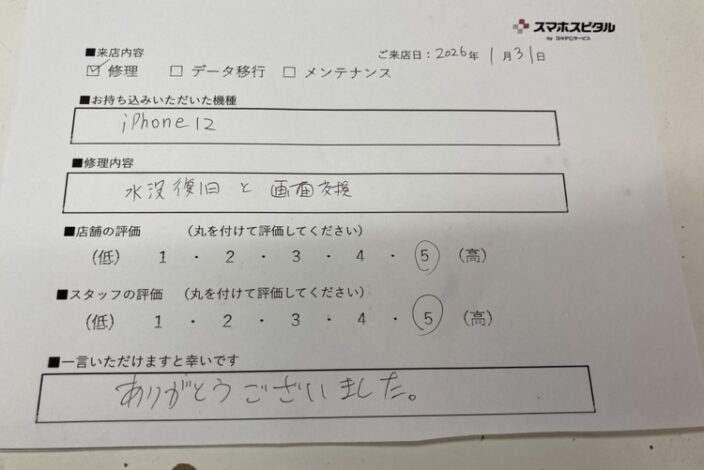 スマホスピタル
■来店内容
ご来店日：2026年 1月31日
☑ 修理 □ データ移行 □ メンテナンス
■お持ち込みいただいた機種
iPhone 12
■修理内容
水没復旧と画面交換
■店舗の評価 （丸を付けて評価してください）
（低） 1 ・ 2 ・ 3 ・ 4 ・ 5 （高）
■スタッフの評価 （丸を付けて評価してください）
（低） 1 ・ 2 ・ 3 ・ 4 ・ 5 （高）
■一言いただけますと幸いです
ありがとうございました。